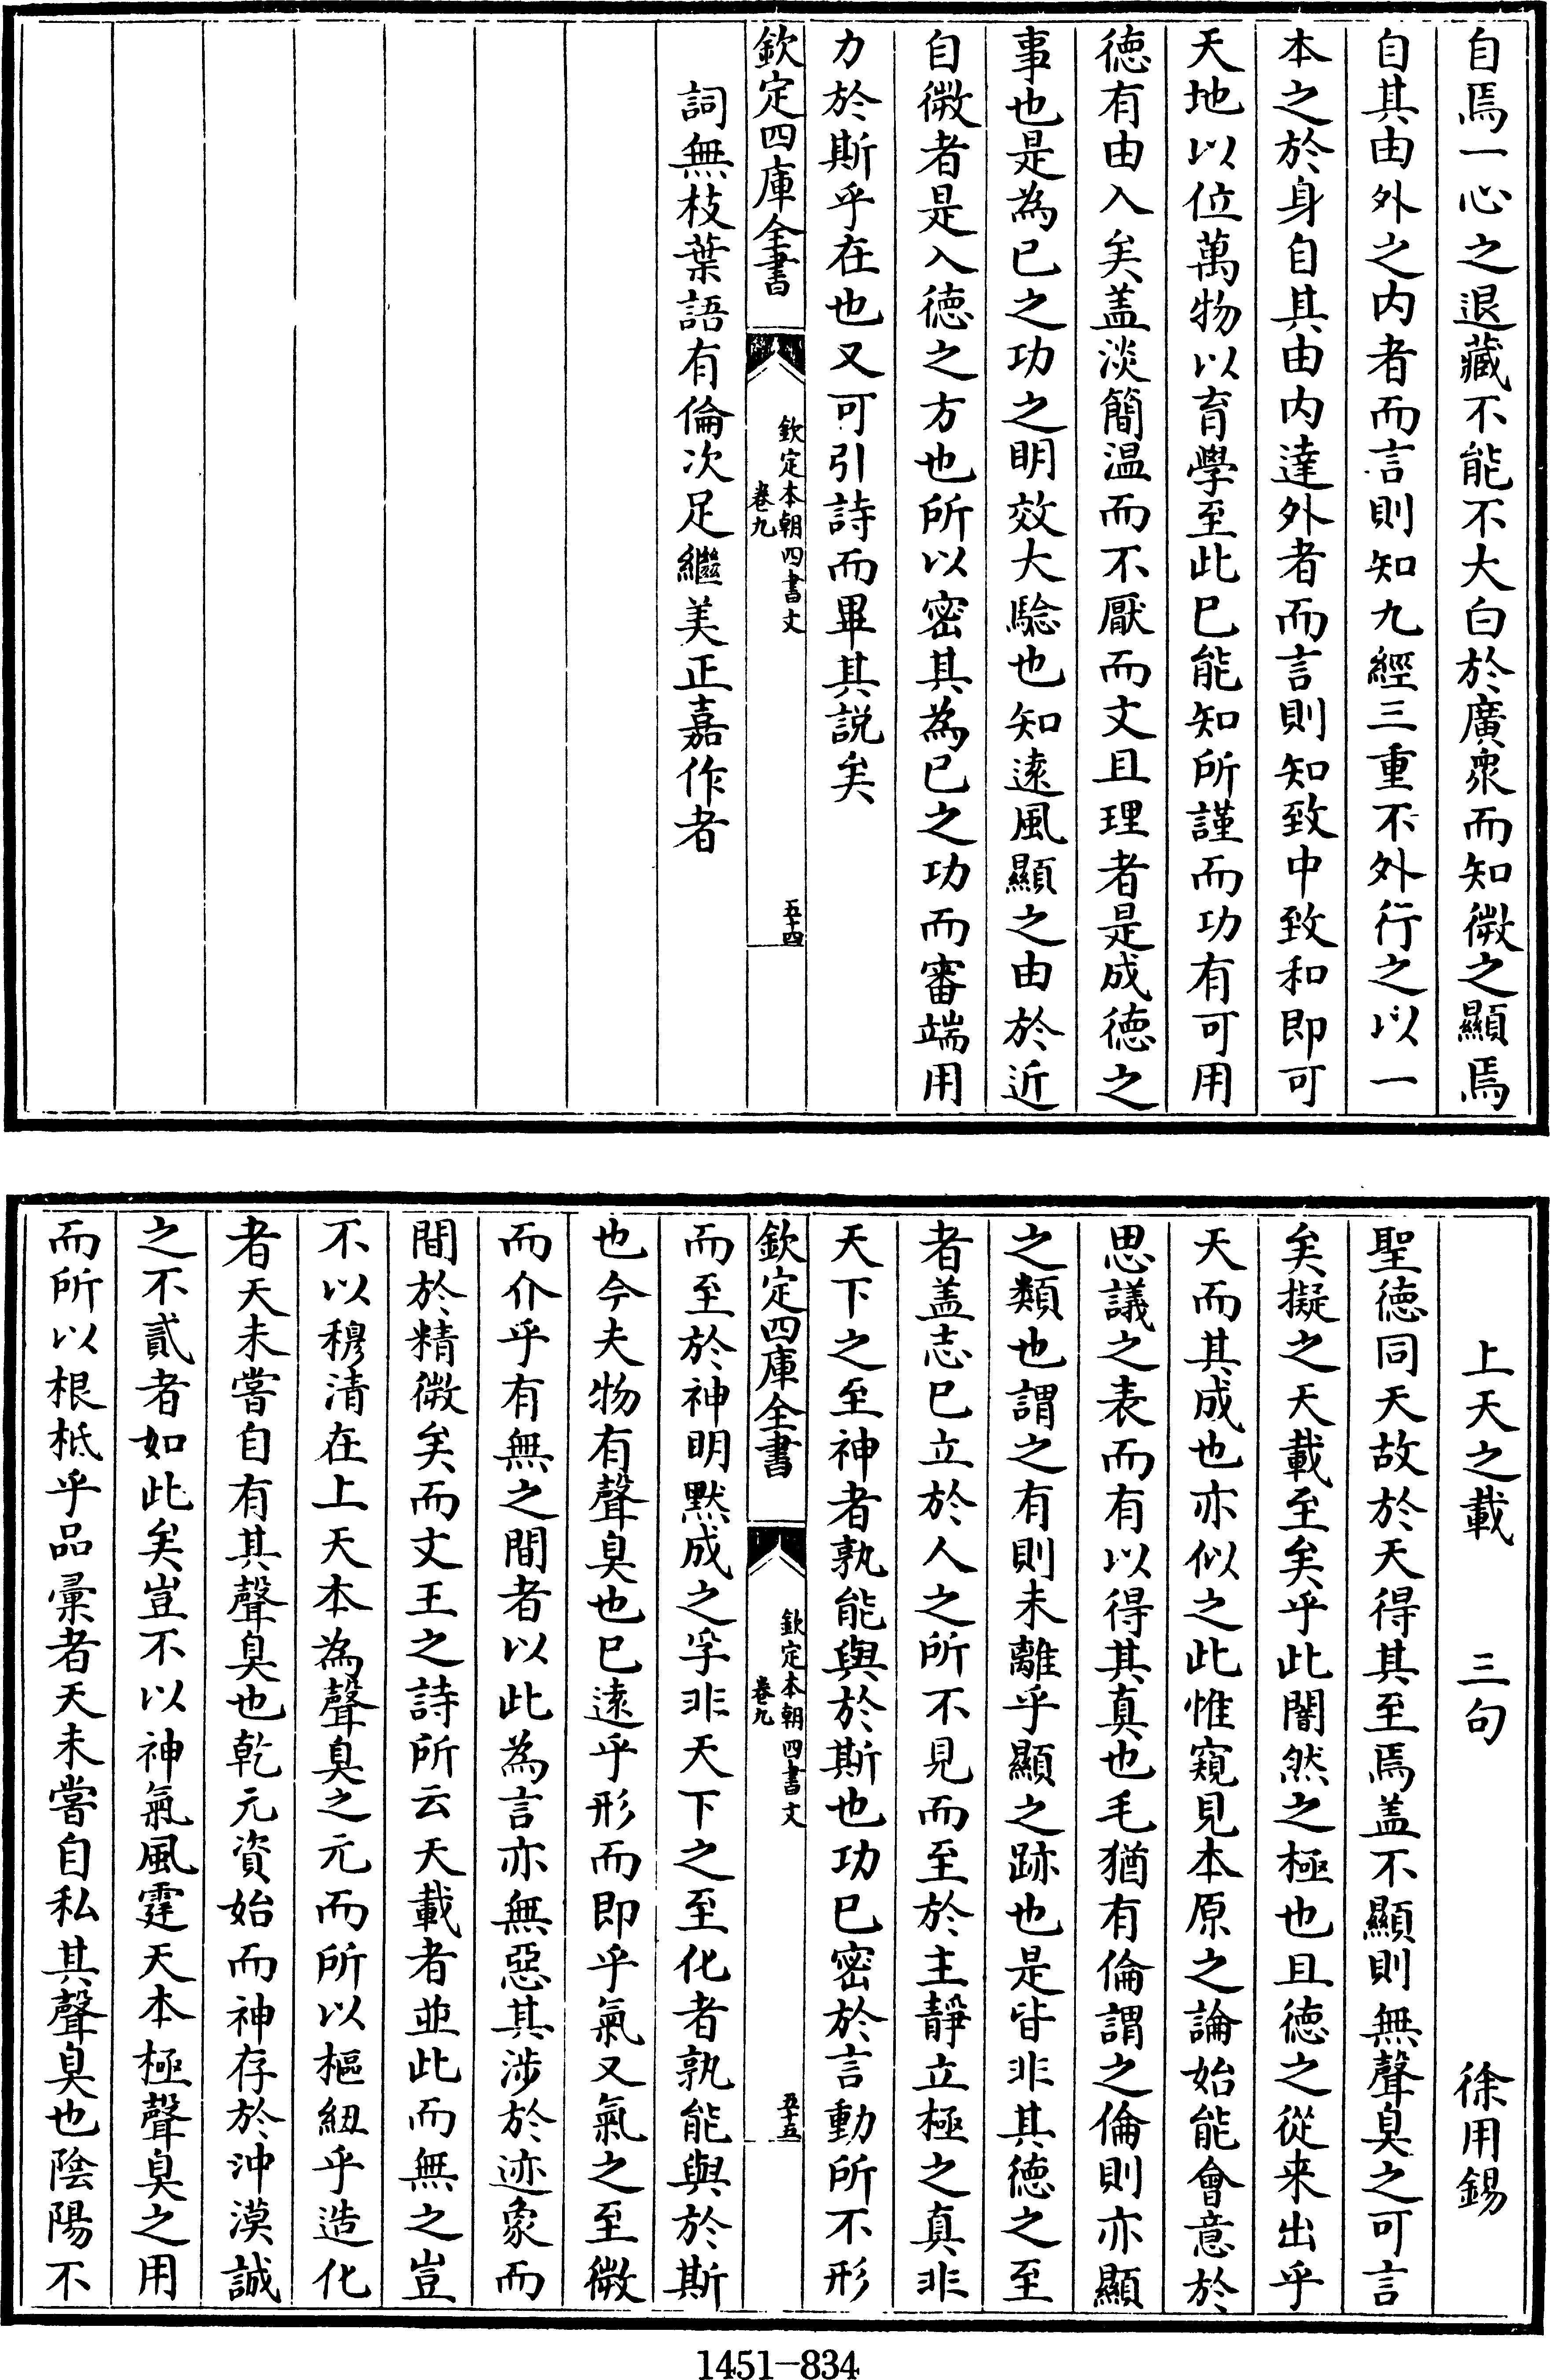 自焉一心之退藏不能不大白於廣衆而知微之顯焉
自其由外之内者而言則知九經三重不外行之以一
本之於身自其由内達外者而言則知致中致和即可
天地以位萬物以育學至此已能知所謹而功有可用
徳有由入矣盖淡簡温而不厭而文且理者是成徳之
事也是為已之功之明效大驗也知逺風顯之由於近
自微者是入徳之方也所以密其為已之功而審端用
力於斯乎在也又可引詩而畢其説矣
欽定四庫全書
欽定本朝四書文
卷九
五十四
詞無枝葉語有倫次足繼美正嘉作者
上天之載 三句 徐用錫
聖徳同天故於天得其至焉盖不顯則無聲臭之可言
矣擬之天載至矣乎此闇然之極也且徳之從来出乎
天而其成也亦似之此惟窺見本原之論始能會意於
思議之表而有以得其真也毛猶有倫謂之倫則亦顯
之類也謂之有則未離乎顯之跡也是皆非其徳之至
者盖志已立於人之所不見而至於主靜立極之真非
天下之至神者孰能與於斯也功已密於言動所不形
欽定四庫全書
欽定本朝四書文
卷九
五十五
而至於神明黙成之孚非天下之至化者孰能與於斯
也今夫物有聲臭也已逺乎形而即乎氣又氣之至微
而介乎有無之間者以此為言亦無惡其渉於迹象而
間於精微矣而文王之詩所云天載者並此而無之豈
不以穆清在上天本為聲臭之元而所以樞紐乎造化
者天未嘗自有其聲臭也乾元資始而神存於沖漠誠
之不貳者如此矣豈不以神氣風霆天本極聲臭之用
而所以根柢乎品彚者天未嘗自私其聲臭也陰陽不
1451-834